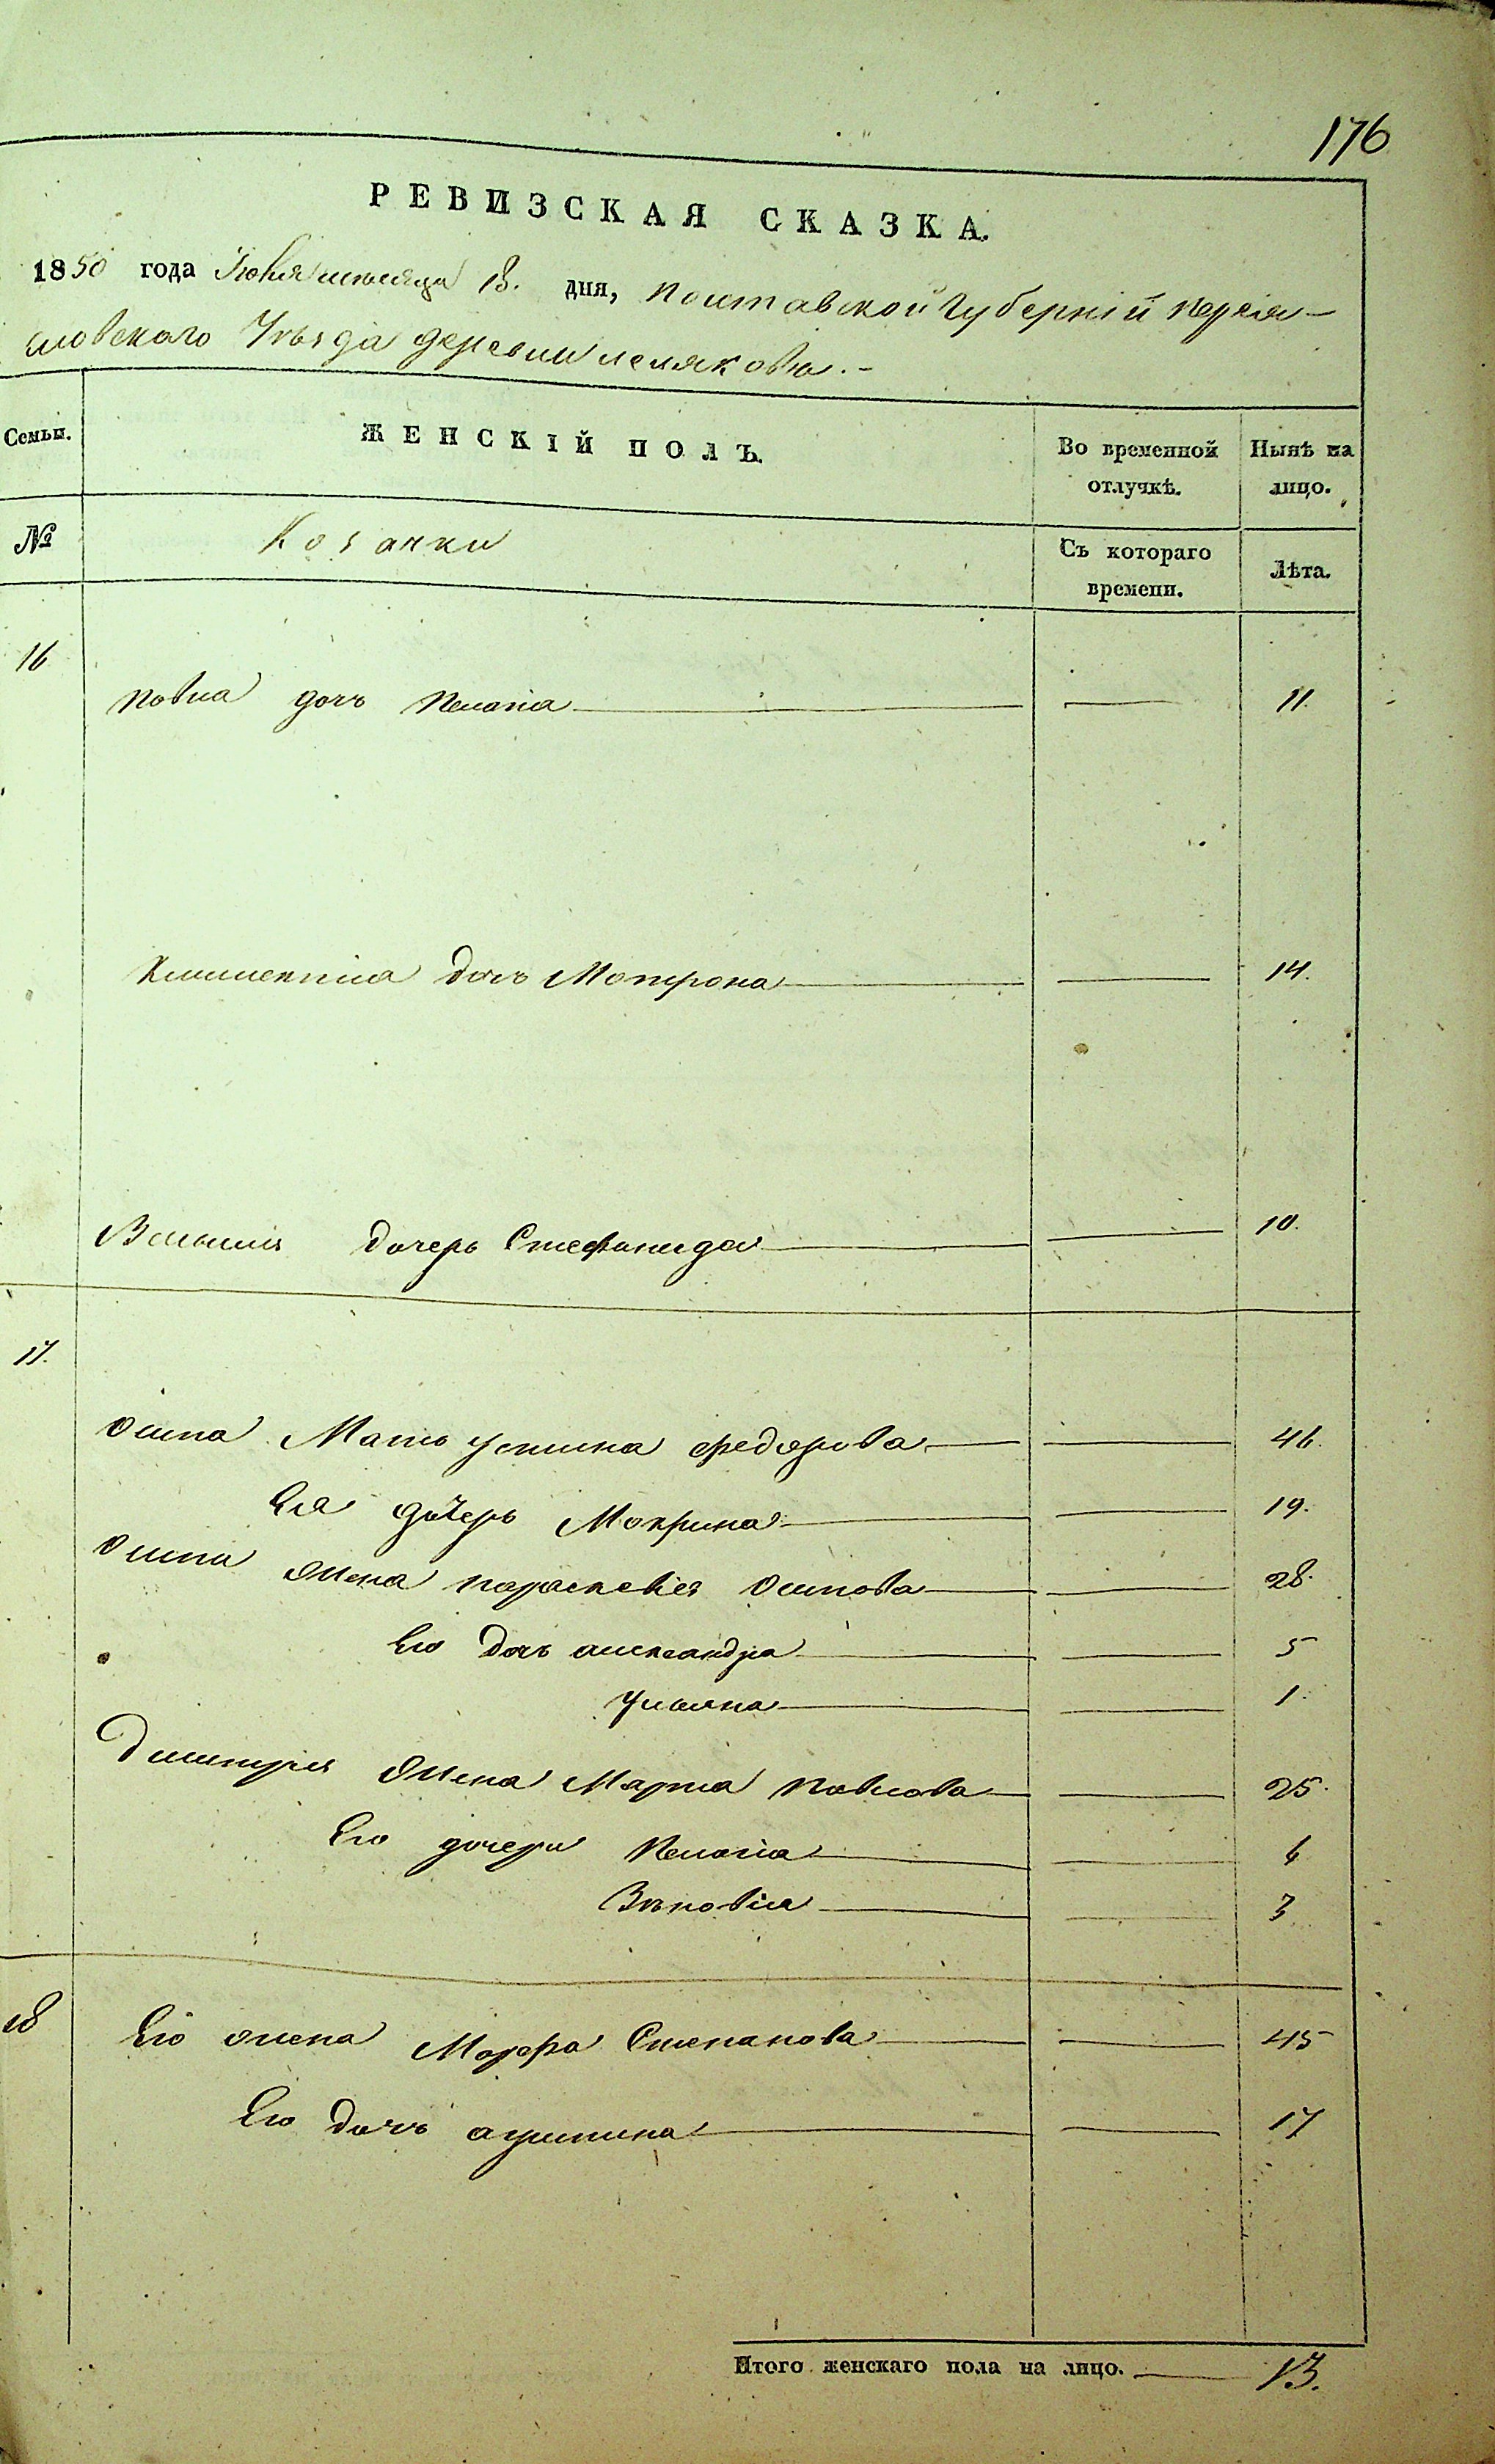 176
РЕВИЗСКАЯ СКАЗКА.
1850 года Июня месяца 13. дня, Полтавской Губерніи Переяс-
ловскаго Уѣзда деревни Лемяковъ.-
Семьи.
ЖЕНСКІЙ ПОЛЪ.
Во временной отлучкѣ.
Нынѣ на лицо.
№
Козачки
Съ котораго времени.
Лѣта.
16
Павла дочь Пелагія 11.
Климентіа дочь Мотрона 14.
Василия дочерь Стефанида 10.
17.
Осипа Мать Устина Федорова 46.
Ея дочерь Мокрина 19.
Осипа Жена Параскевія Осипова 28.
Его дочь Александра 5
Ульяна 1.
Димитрія Жена Марта Павлова 25.
Его дочери Пелагіа 6
Зѣновіа 3
18
Его жена Марфа Степанова 45
Его дочь Агрипина 17
Итого женскаго пола на лицо. 13.